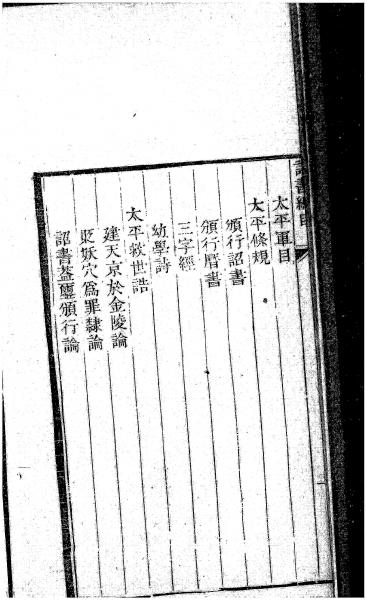 詔書總目
太平軍目
太平條規
頒行詔書
頒行曆書
三字經
幼學詩
太平救世誥
建天京於金陵論
貶妖穴爲罪隸論
詔書蓋璽頒行論